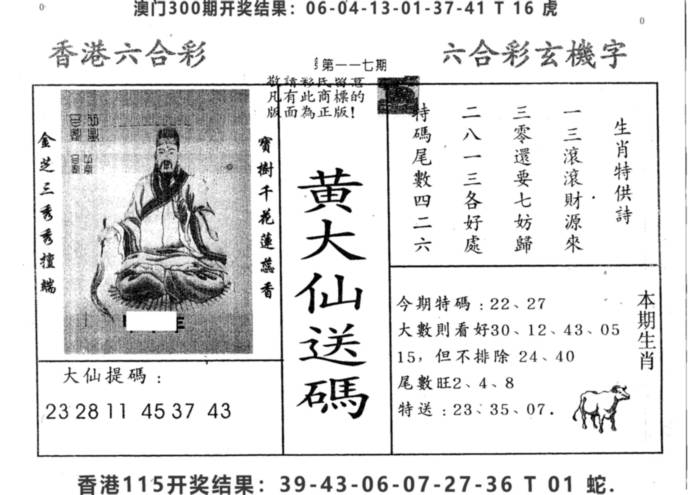 澳门300期开奖结果：06-04-13-01-37-41 T 16 虎
香港六合彩
第一一七期
六合彩玄機字
敬請彩民留意
凡有此商標的
版面為正版!
生肖特供詩
一三滾滾財源來
三零還要七妨歸
二八一三各好處
特碼尾數四二六
金芝三秀秀擅端
寳樹千花蓮蕊香
黃大仙送碼
大仙提碼：
23 28 11 45 37 43
本期生肖
今期特碼：22、27
大數則看好30、12、43、05
15，但不排除 24、40
尾數旺2、4、8
特送：23、35、07．
香港115开奖结果：39-43-06-07-27-36 T 01 蛇.